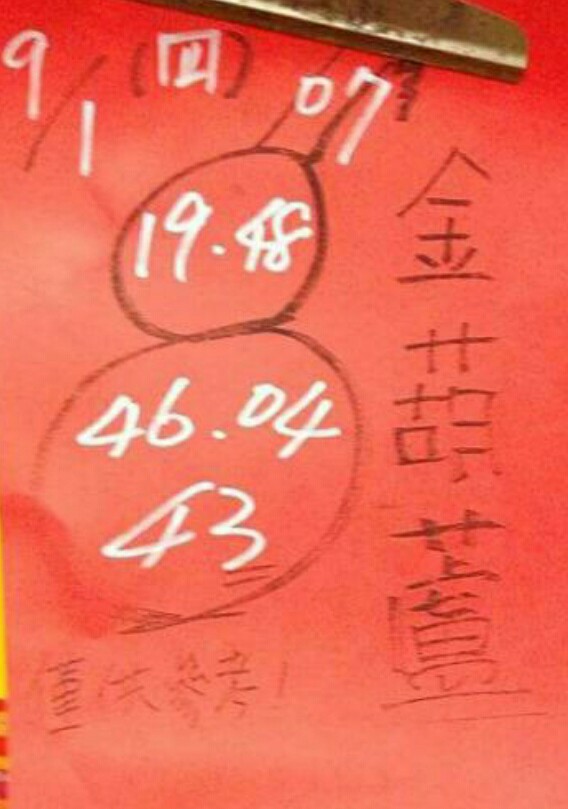 9/1 (四) 07
19.48
46.04
43
金葫蘆
僅供參考!